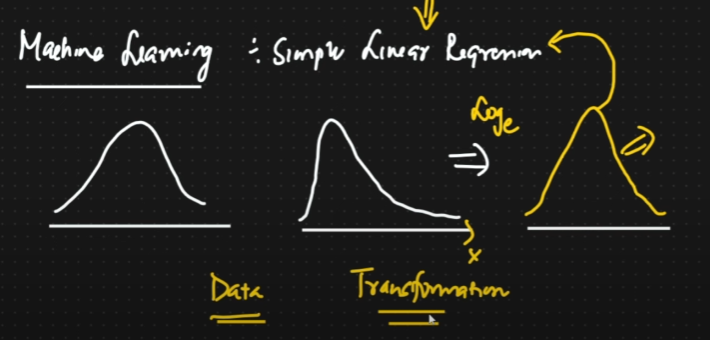 Machine Learning ÷ Simple Linear Regression
Loge
x
Data Transformation